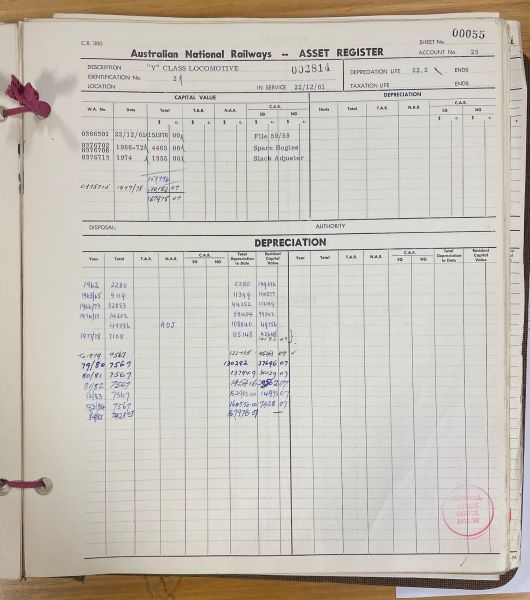 C.R. 300
SHEET No. 00055
Australian National Railways -- ASSET REGISTER
ACCOUNT No. 25
DESCRIPTION "Y" CLASS LOCOMOTIVE 002814
IDENTIFICATION No. 21
LOCATION IN SERVICE 22/12/61
DEPRECIATION LIFE 22.2 ENDS
TAXATION LIFE ENDS
CAPITAL VALUE DEPRECIATION
W.A. No. Date Total T.A.R. N.A.R. C.A.R. Starts Total T.A.R. N.A.R. C.A.R.
SG NG SG NG
$ c. $ c. $ c. $ c. $ c. $ c. $ c. $ c. $ c. $ c.
0366301 22/12/61 151976 00 File 59/59
0376702
0376708 1966-72 4465 00 Spare Bogies
0376713 1974 1355 00 Slack Adjuster
157796
1977/78 10182 07
167978 07
DISPOSAL: AUTHORITY
DEPRECIATION
Year Total T.A.R. N.A.R. C.A.R. Total Depreciation to Date Residual Capital Value Year Total T.A.R. N.A.R. C.A.R. Total Depreciation to Date Residual Capital Value
SG NG SG NG
1962 2280 2280
1963/65 9119 11399 140577
44252
49386 ADJ 108040 49756
1977/78 7108 115148 42648
10182 07
7567 122715 45263 07
79/80 7567 130282 37696 07
80/81 7567 137849 30129 07
81/82 7567 145416 07
82/83 7567 152983.00 14995 07
83/84 7567 160550.00 7428 07
84/85 7428.07 167978.07 —